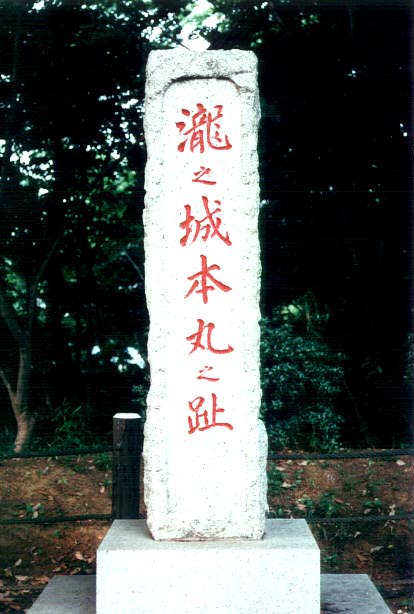 瀧之城本丸之趾